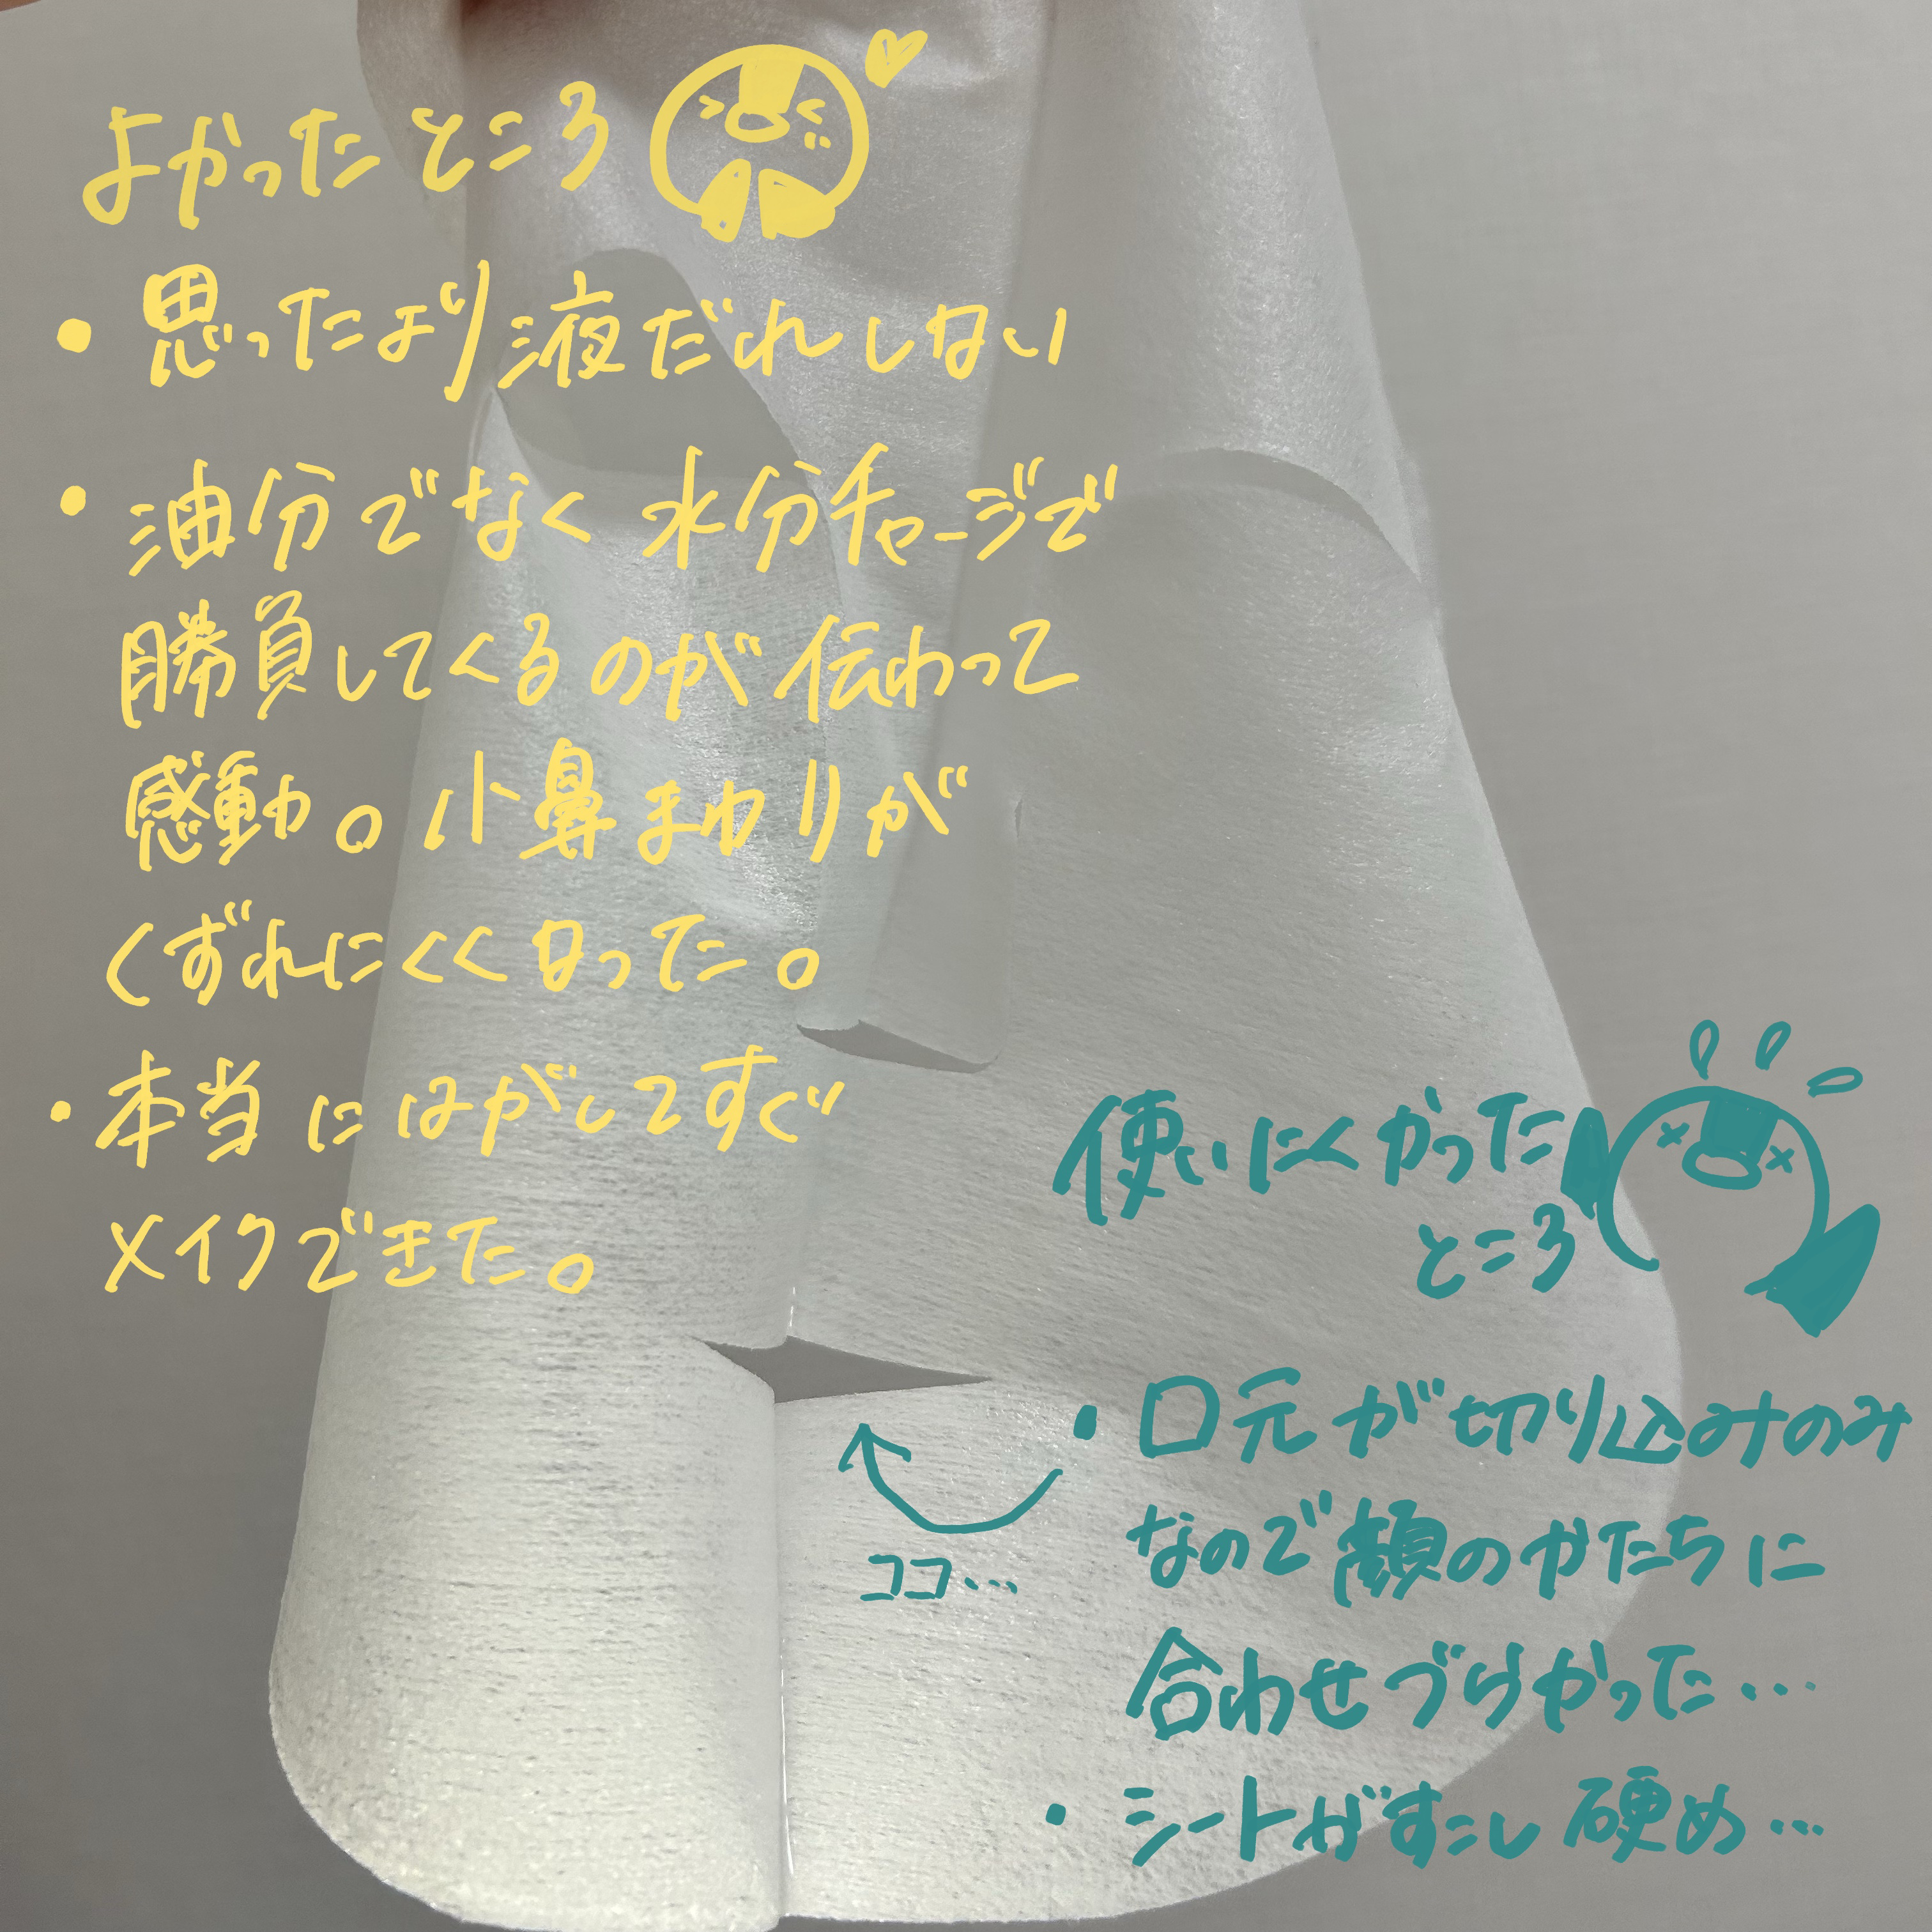 よかったところ
・思ったより液だれしない
・油分でなく水分チャージで
勝負してくるのが伝わって
感動。小鼻まわりが
くずれにくくなった。
・本当にはがしてすぐ
メイクできた。
使いにくかった
ところ
・口元が切り込みのみ
なので顔のかたちに
合わせづらかった…
ココ…
・シートがすこし硬め…